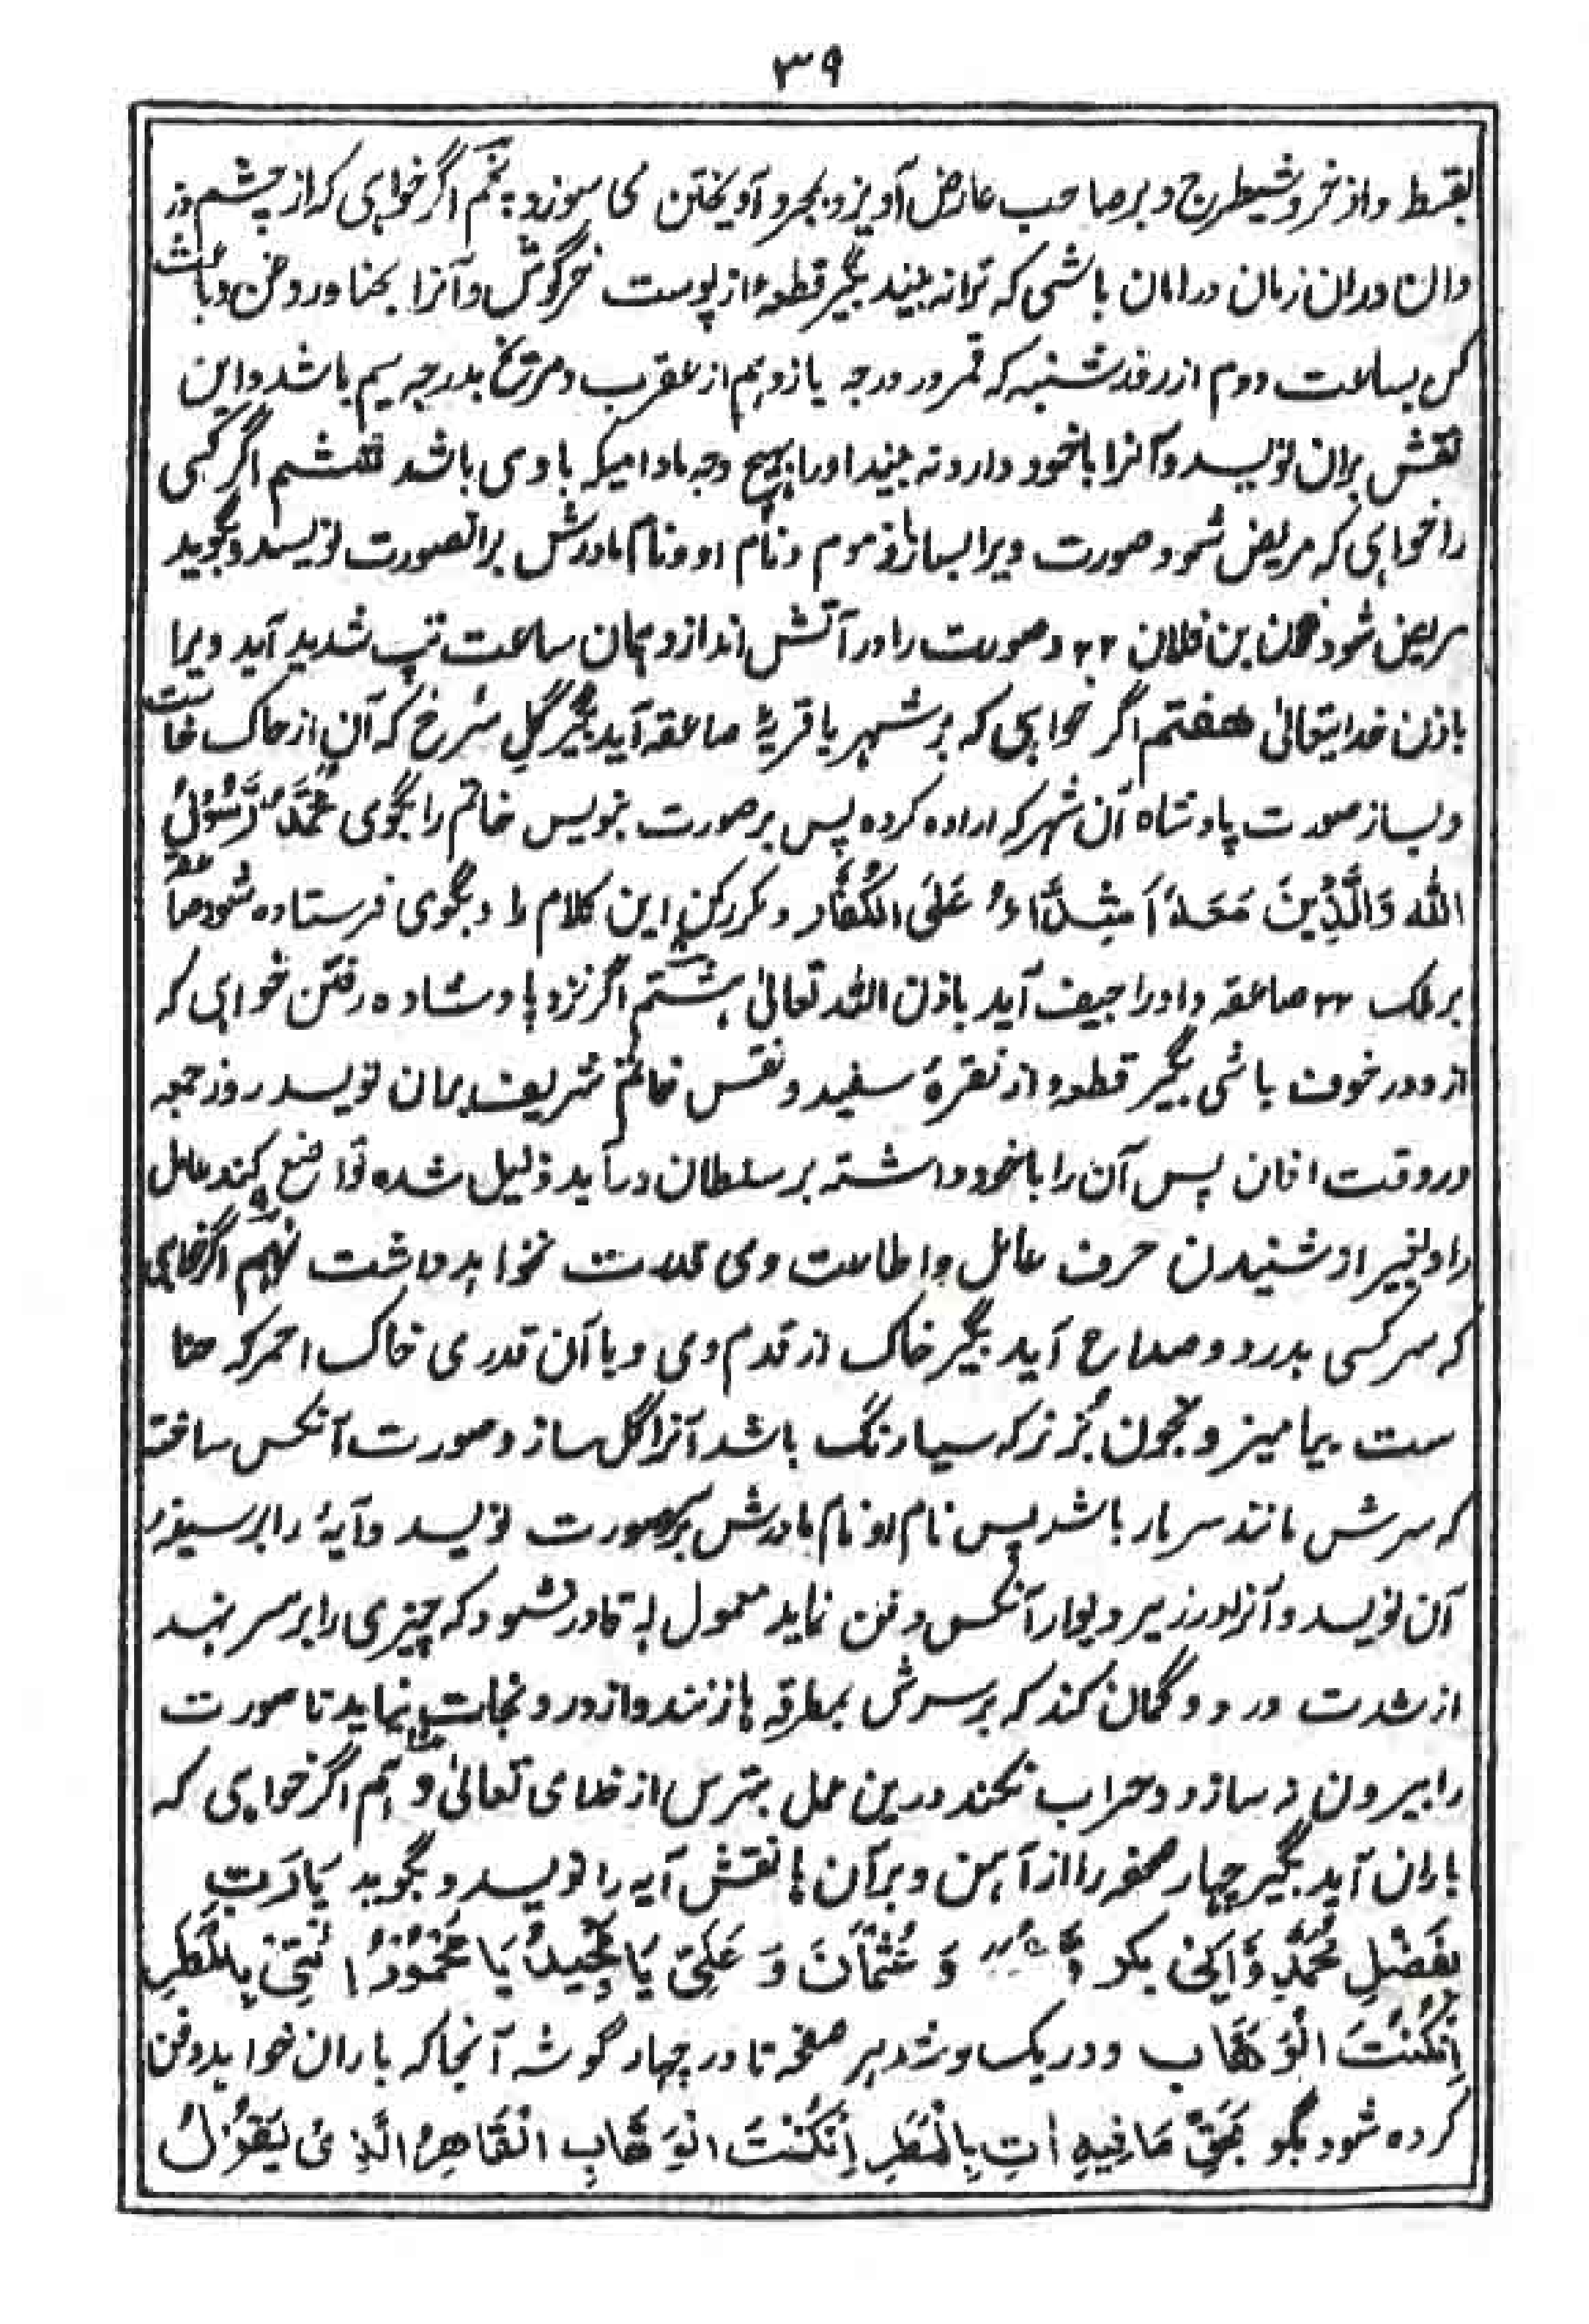 ۳۹
بقسط و از خر و شیطرج و بر صاحب عارض آویزد بجرد آویختن می سوزد پنجم اگر خواهی که از چشم
دران زمان در امان باشی که ترا نه بیند بگیر قطعهء از پوست خرگوش و آنرا بحنا و روغن
کن بساعت دوم از روز شنبه که قمر در درجه یازدهم از عقرب و مریخ بدرجه یم باشد و این
نقش بران نویسد و آنرا باخود دارد نه بیند او را بهیچ وجه مادامیکه با وی باشد ششم اگر کسی
را خواهی که مریض شود صورت ویرا بساز از موم و نام او و نام مادرش بر انصورت نویسد و بگوید
مریض شود فلان بن فلان ۲۲ و صورت را در آتش انداز و همان ساعت تپ شدید آید ویرا
باذن خدایتعالیٰ هفتم اگر خواهی که بر شهر یا قریهٔ صاعقه آید بگیر گلِ سُرخ که آن از خاک
و بساز صورت پادشاه آن شهر که اراده کرده پس بر صورت بنویس خاتم را بگوی مُحَمَّدٌ رَّسُوْلُ
اللّٰه وَالَّذِيْنَ مَعَهٗ اَشِدَّاءُ عَلَى الْكُفَّار و مکرر کن این کلام را و بگوی فرستاده شود
بر ملک ۲۲ صاعقه و او را حیف آید باذن اللّٰه تعالیٰ هشتم اگر نزد پادشاه رفتن خواهی که
از و در خوف باشی بگیر قطعهء از نقرهٔ سفید و نقش خاتم شریف بران نویسد روز جمعه
در وقت اذان پس آن را باخود داشته بر سلطان درآید ذلیل شده تواضع کند عامل
را و بغیر از شنیدن حرف عامل و اطاعت وی نخواهد داشت نهم اگر خواهی
که سر کسی بدرد و صداع آید بگیر خاک از قدم وی و با آن قدری خاک احمر که حنا
ست بیامیز و بخون بُز نر که سیاه رنگ باشد آنرا گل ساز و صورت آنکس ساخته
که سرش مانند سر مار باشد پس نام او نام مادرش بر صورت نویسد و آیهٔ را بر سینهٔ
آن نویسد و آنرا در زیر دیوار آنکس دفن نماید معمول له قادر نشود که چیزی را بر سر نهد
از شدت درد و گمان کند که بر سرش بمطرقه ها زنند و از درد نجات نیابد تا صورت
را بیرون نه سازد و خراب نکند درین عمل بترس از خدای تعالیٰ دهم اگر خواهی که
باران آید بگیر چهار صفحه را از آهن و بر آن ها نقش آیه را نویسد و بگوید يَا رَبِّ
بِفَضْلِ مُحَمَّدٍ وَّاَبِیْ بکر وَّ عُمَرَ وَ عُثْمَانَ وَ عَلِيّ يَا مَجِيْدُ يَا مَحْمُوْدُ ائْتِنِیْ بِالْمَطَرِ
اِنْ كُنْتَ الْوَهَّاب و در یک هر صفحه تا در چهار گوشه آنجا که باران خواهد دفن
کرده شود بگو بِحَقِّ مَا فِیْهِ اٰتِ بِالْمَطَرِ اِنْ كُنْتَ الْوَهَّابِ الْقَاهِرُ الَّذِیْ يَقُوْلُ